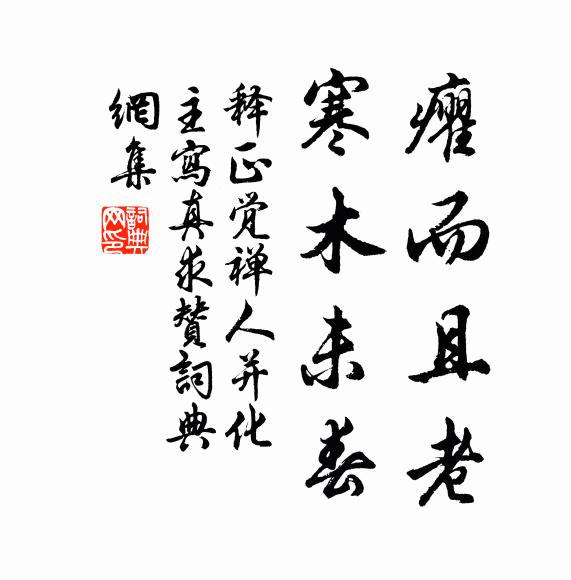 癯而且老
寒木未春
释正觉禅人并化
主寫真求贊詞典
網集
詞典网印